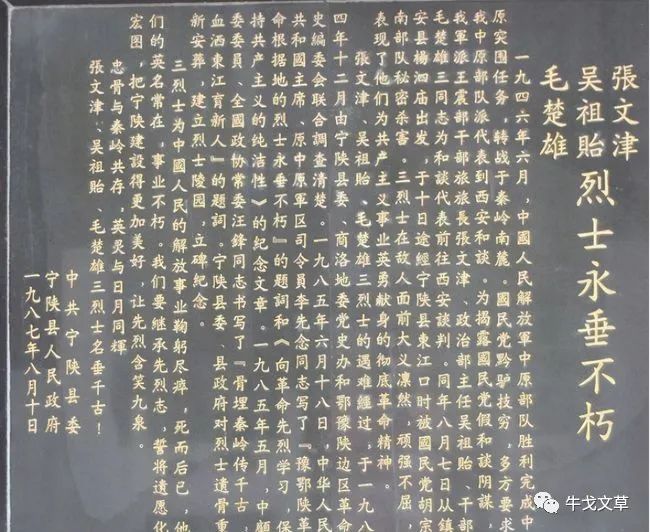 張文津
吴祖贻烈士永垂不朽
毛楚雄
一九四六年六月，中國人民解放軍中原部队胜利完成中
原突围任务，转战于秦岭南麓。國民党黔驴技穷，多方要求
我中原部队派代表到西安和谈。为揭露國民党假和谈阴谋，
我軍派王震部干部旅旅長張文津、政治部主任吴祖贻、干部
毛楚雄三同志为和談代表前往西安談判。同年八月七日从鎮
安县楊泗庙出发，于十日途經宁陕县東江口时被國民党胡宗
南部队秘密杀害。三烈士在敌人面前大义凛然，顽强不屈，
表现了他们为共产主义事业英勇献身的彻底革命精神。
張文津、吴祖贻、毛楚雄三烈士的遇难經过，于一九八
四年十二月由宁陕县委、商洛地委党史办和鄂豫陕边区革命
史编委会联合調查清楚。一九八五年六月十八日，中华人民
共和國主席、原中原軍区司令員李先念同志写了『豫鄂陕革
命根据地的烈士永垂不朽』的题词和《向革命先烈学习，保
持共产主义的纯洁性》的纪念文章。一九八五年五月，中顧
委委员、全國政协常委汪鋒同志书写了『骨埋秦岭传千古，
血洒東江育新人』的题词。宁陕县委、县政府对烈士遗骨重
新安葬，建立烈士陵园，立碑紀念。
三烈士为中國人民的解放事业鞠躬尽瘁，死而后已，他
们的英名常在，事业不朽。我们要继承先烈志，誓将遗愿化
宏图，把宁陕建設得更加美好，让先烈含笑九泉。
忠骨与秦岭共存，英灵与日月同輝
張文津、吴祖贻、毛楚雄三烈士名垂千古！
中共宁陕县委
宁陕县人民政府
一九八七年八月十日
牛戈文草